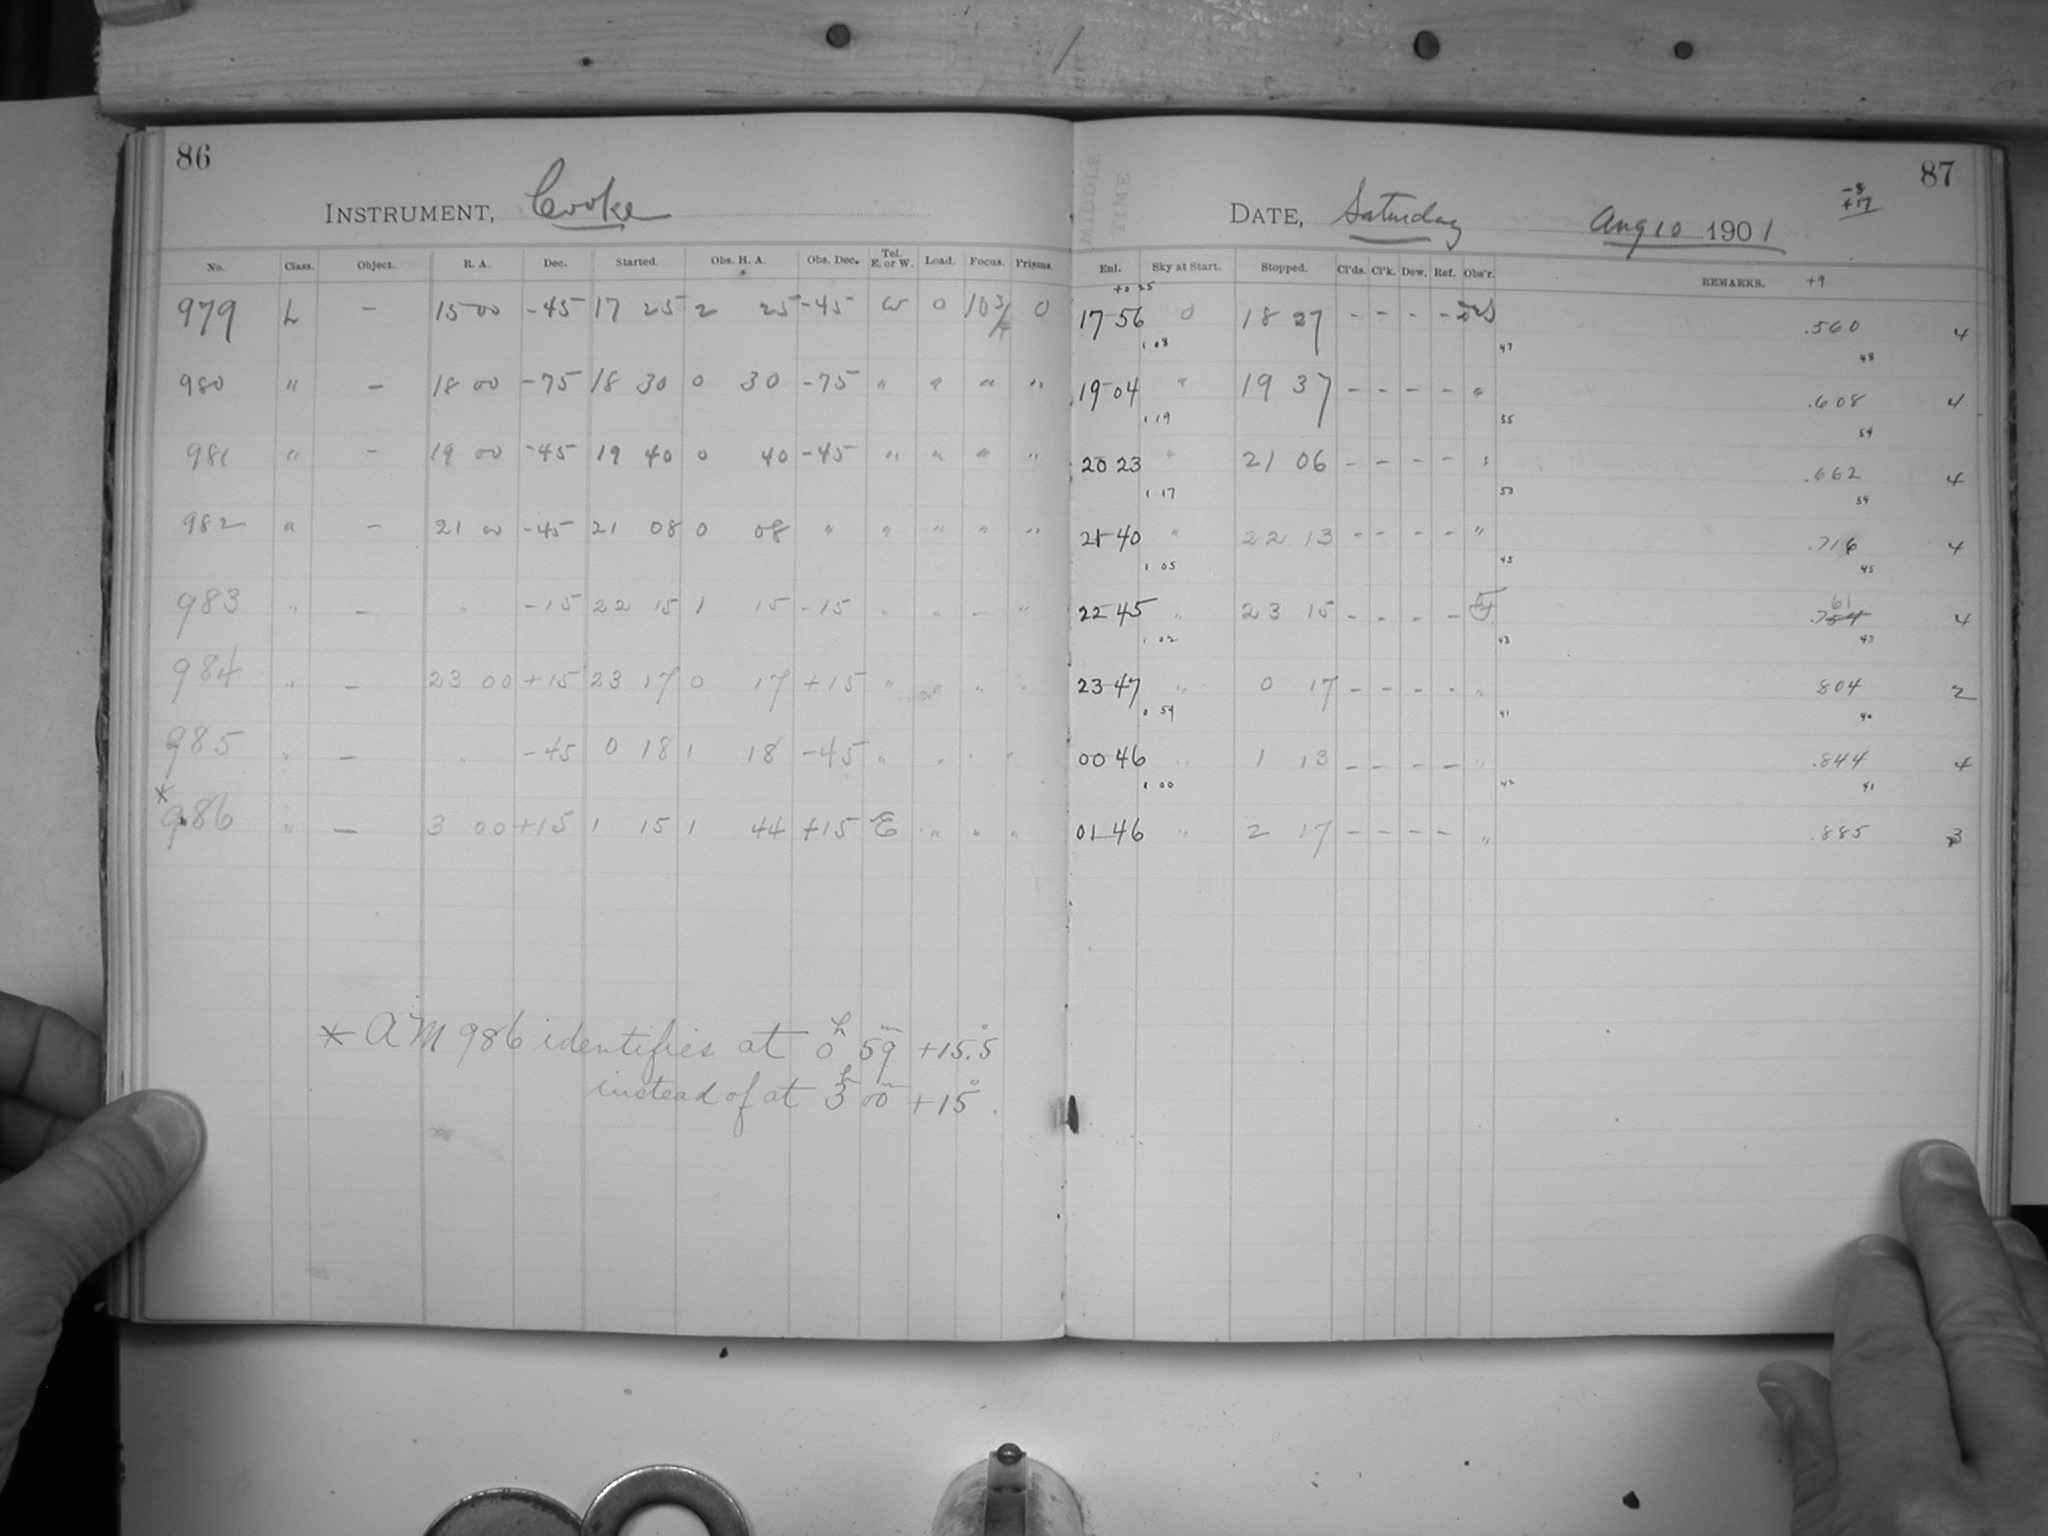 86
INSTRUMENT, Cooke
No. Class. Object. R. A. Dec. Started. Obs. H. A. Obs. Dec. Tel. E. or W. Load. Focus. Prisms
979 L - 15 00 -45 17 25 2 25 -45 W 0 10 3/4 0
980 " - 18 00 -75 18 30 0 30 -75 " " " "
981 " - 19 00 -45 19 40 0 40 -45 " " " "
982 a - 21 00 -45 21 08 0 08 " " " " "
983 " - " -15 22 15 1 15 -15 " " - "
984 " - 23 00 +15 23 17 0 17 +15 " " " "
985 " - " -45 0 18 1 18 -45 " " " "
*
986 " - 3 00 +15 1 15 1 44 +15 E " " "
* AM 986 identifies at 0h 59m +15.5°
instead of at 3h 00m +15°.
87
-8
+17
MIDDLE
TIME
DATE, Saturday Aug 10 1901
Enl. Sky at Start. Stopped. Cl'ds. Cl'k. Dew. Ref. Obs'r. REMARKS. +9
+0 25
17 56 0 18 27 - - - - .560 4
1 08 47 48
19 04 " 19 37 - - - - " .608 4
1 19 55 54
20 23 " 21 06 - - - - " .662 4
1 17 53 54
21 40 " 22 13 - - - - " .716 4
1 05 45 45
61
22 45 " 23 15 - - - - .754 4
1 02 43 43
23 47 " 0 17 - - - - " 804 2
0 59 41 40
00 46 " 1 13 - - - - " .844 4
1 00 42 41
01 46 " 2 17 - - - - " .885 3